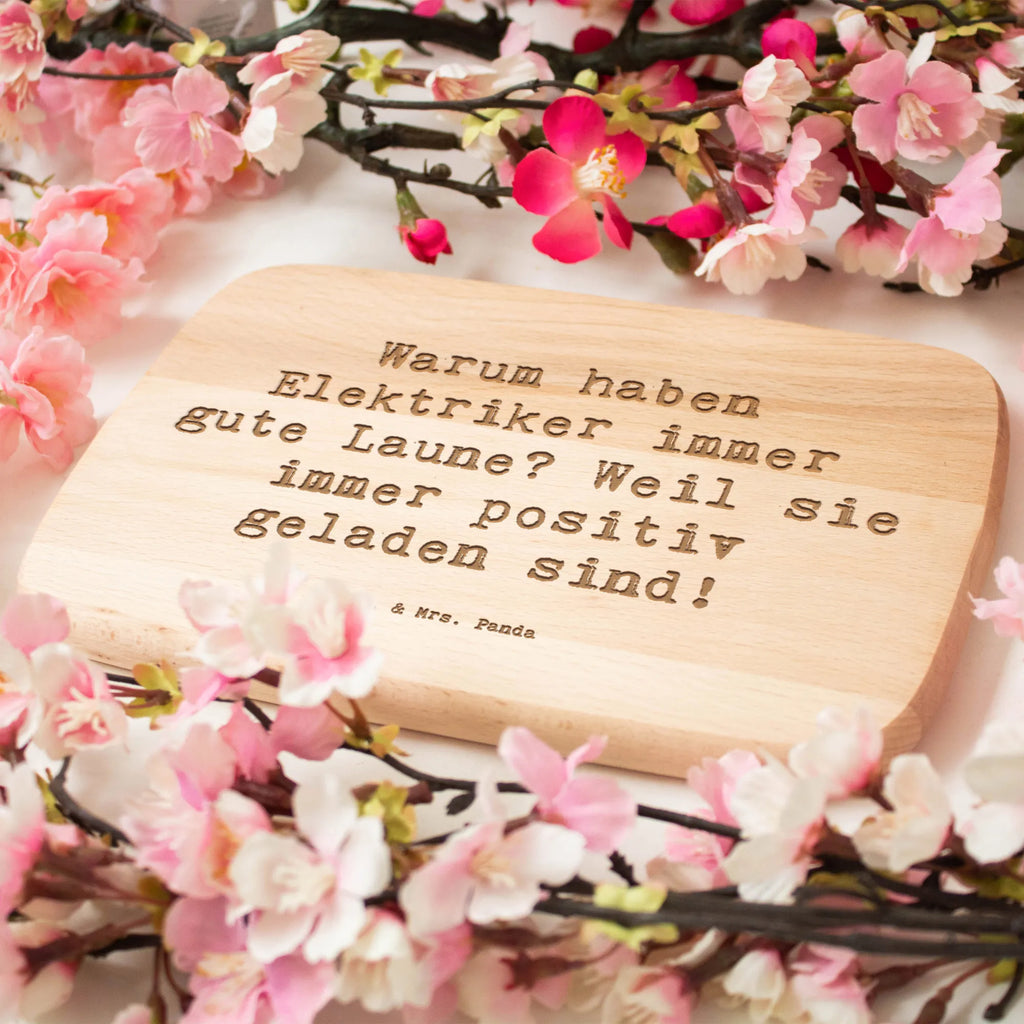 Warum haben
Elektriker immer
gute Laune? Weil sie
immer positiv
geladen sind!
& Mrs. Panda